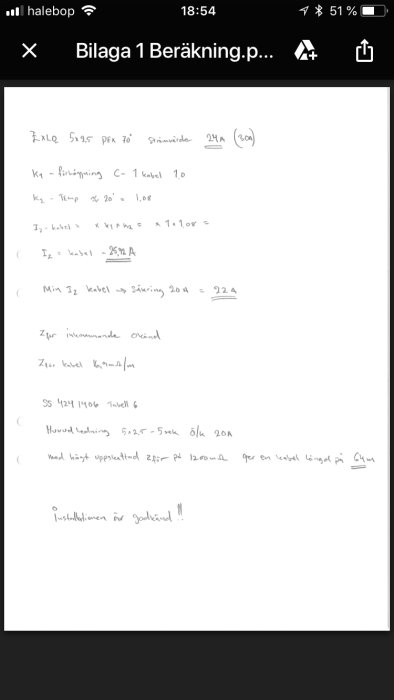 halebop 18:54 51 %
Bilaga 1 Beräkning.p...
EXLQ 5x2,5 PEX 70° Strömvärde 24A (30A)
K1 - förläggning C - 1 kabel 1,0
K2 - Temp 20° = 1,08
Iz - kabel = x K1 x K2 = x 1 x 1,08 =
Iz = kabel - 25,92 A
Min Iz kabel → Säkring 20A = 22A
Zför inkommande okänd
Zför kabel mΩ/m
SS 424 1406 Tabell 6
Huvudledning 5x2,5 - 5sek ö/k 20A
med högt uppskattad Zför på 1200mΩ ger en kabel längd på 64m
Installationen är godkänd!!